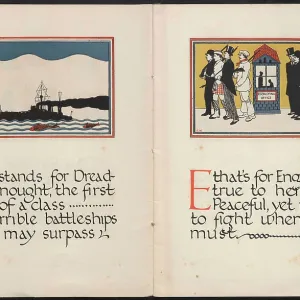 stands for Dread-
nought, the first
of a class ............
rrible battleships
may surpass
E that's for Eng
true to her
Peaceful, yet
to fight when
must